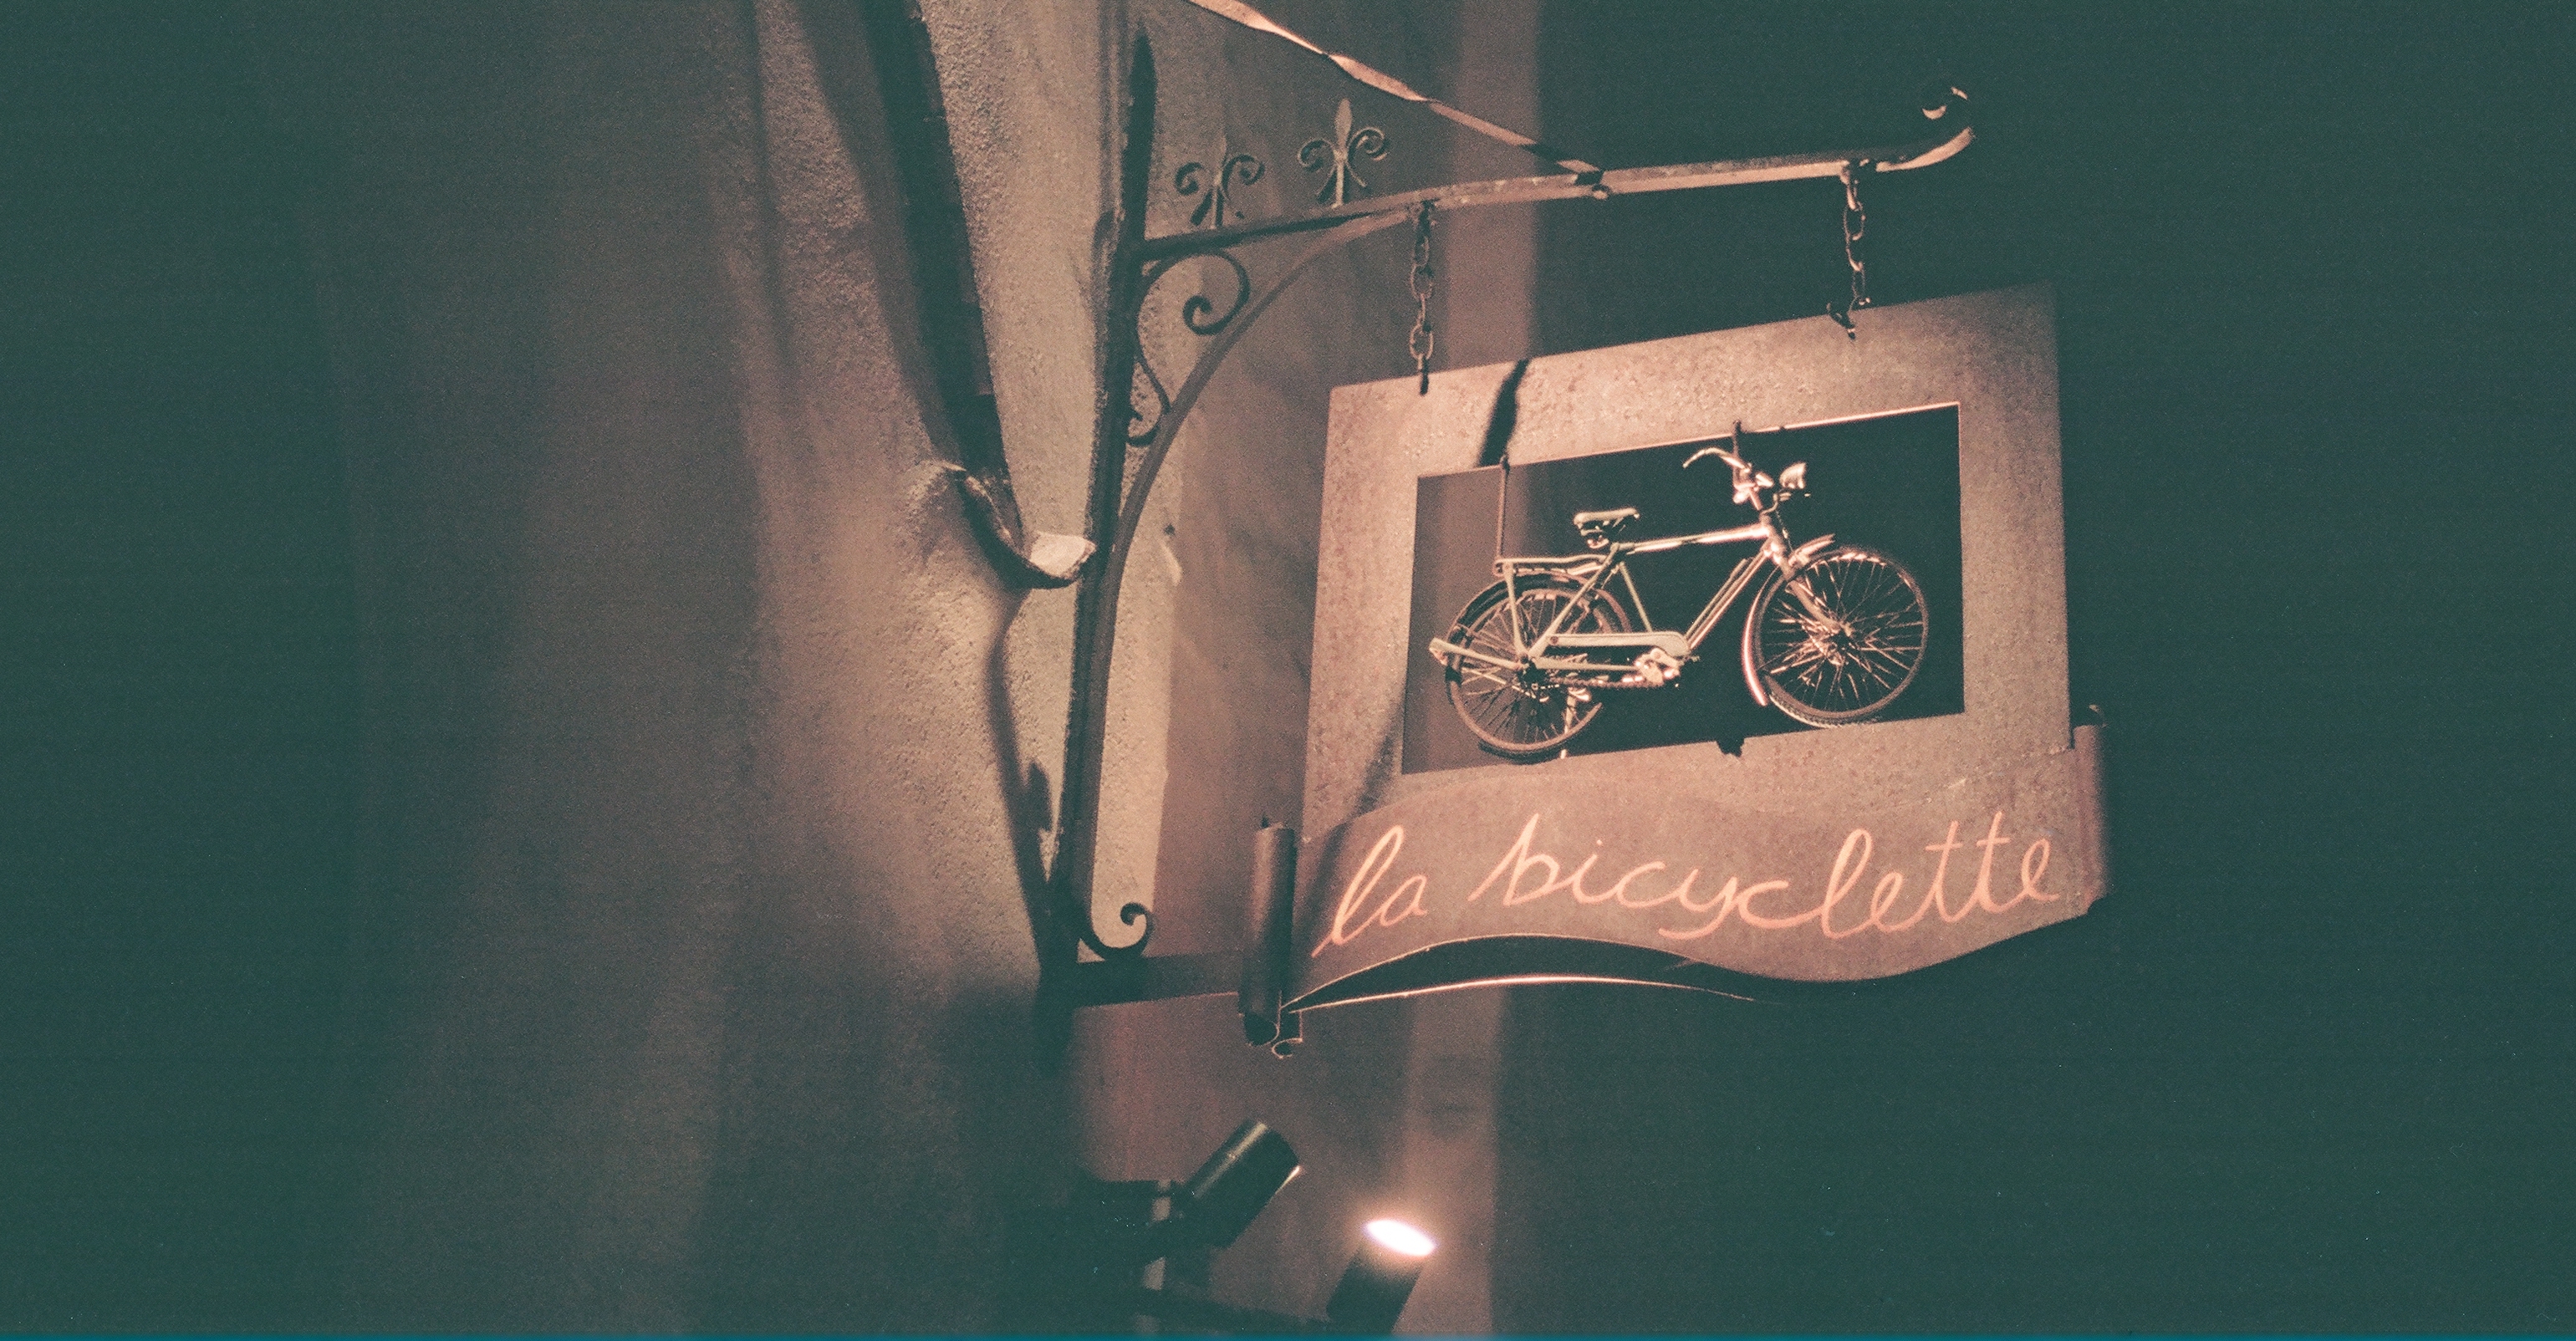 la bicyclette